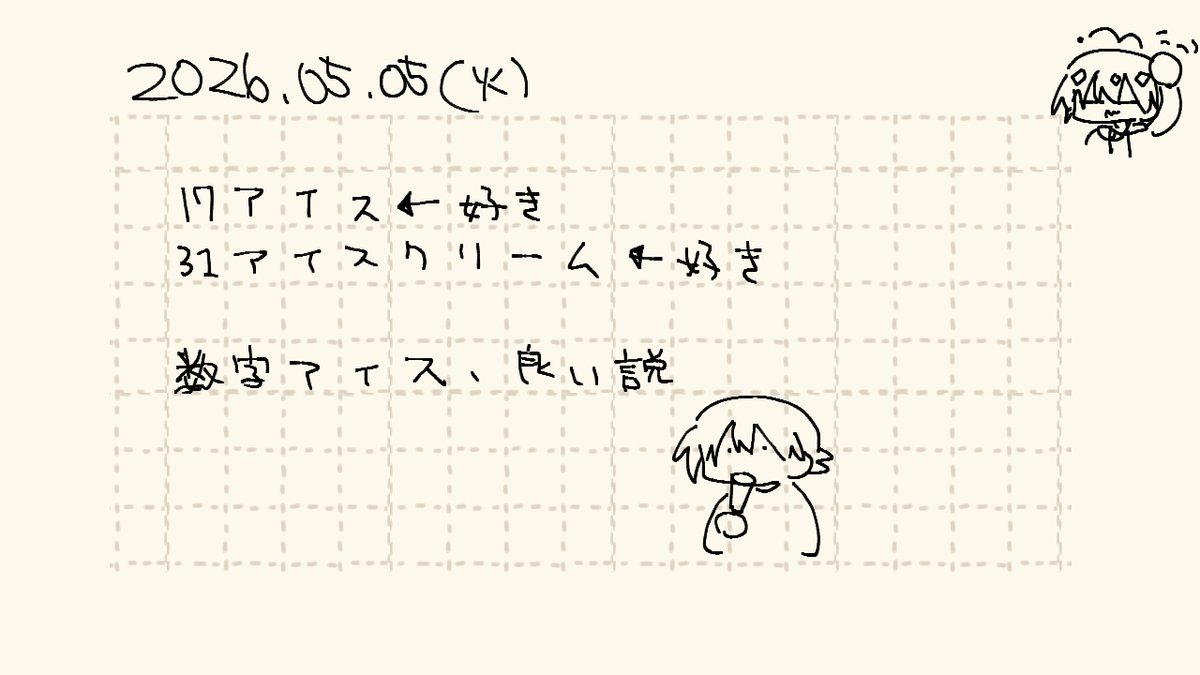 2026.05.05(火)
17アイス←好き
31アイスクリーム←好き
数字アイス、良い説